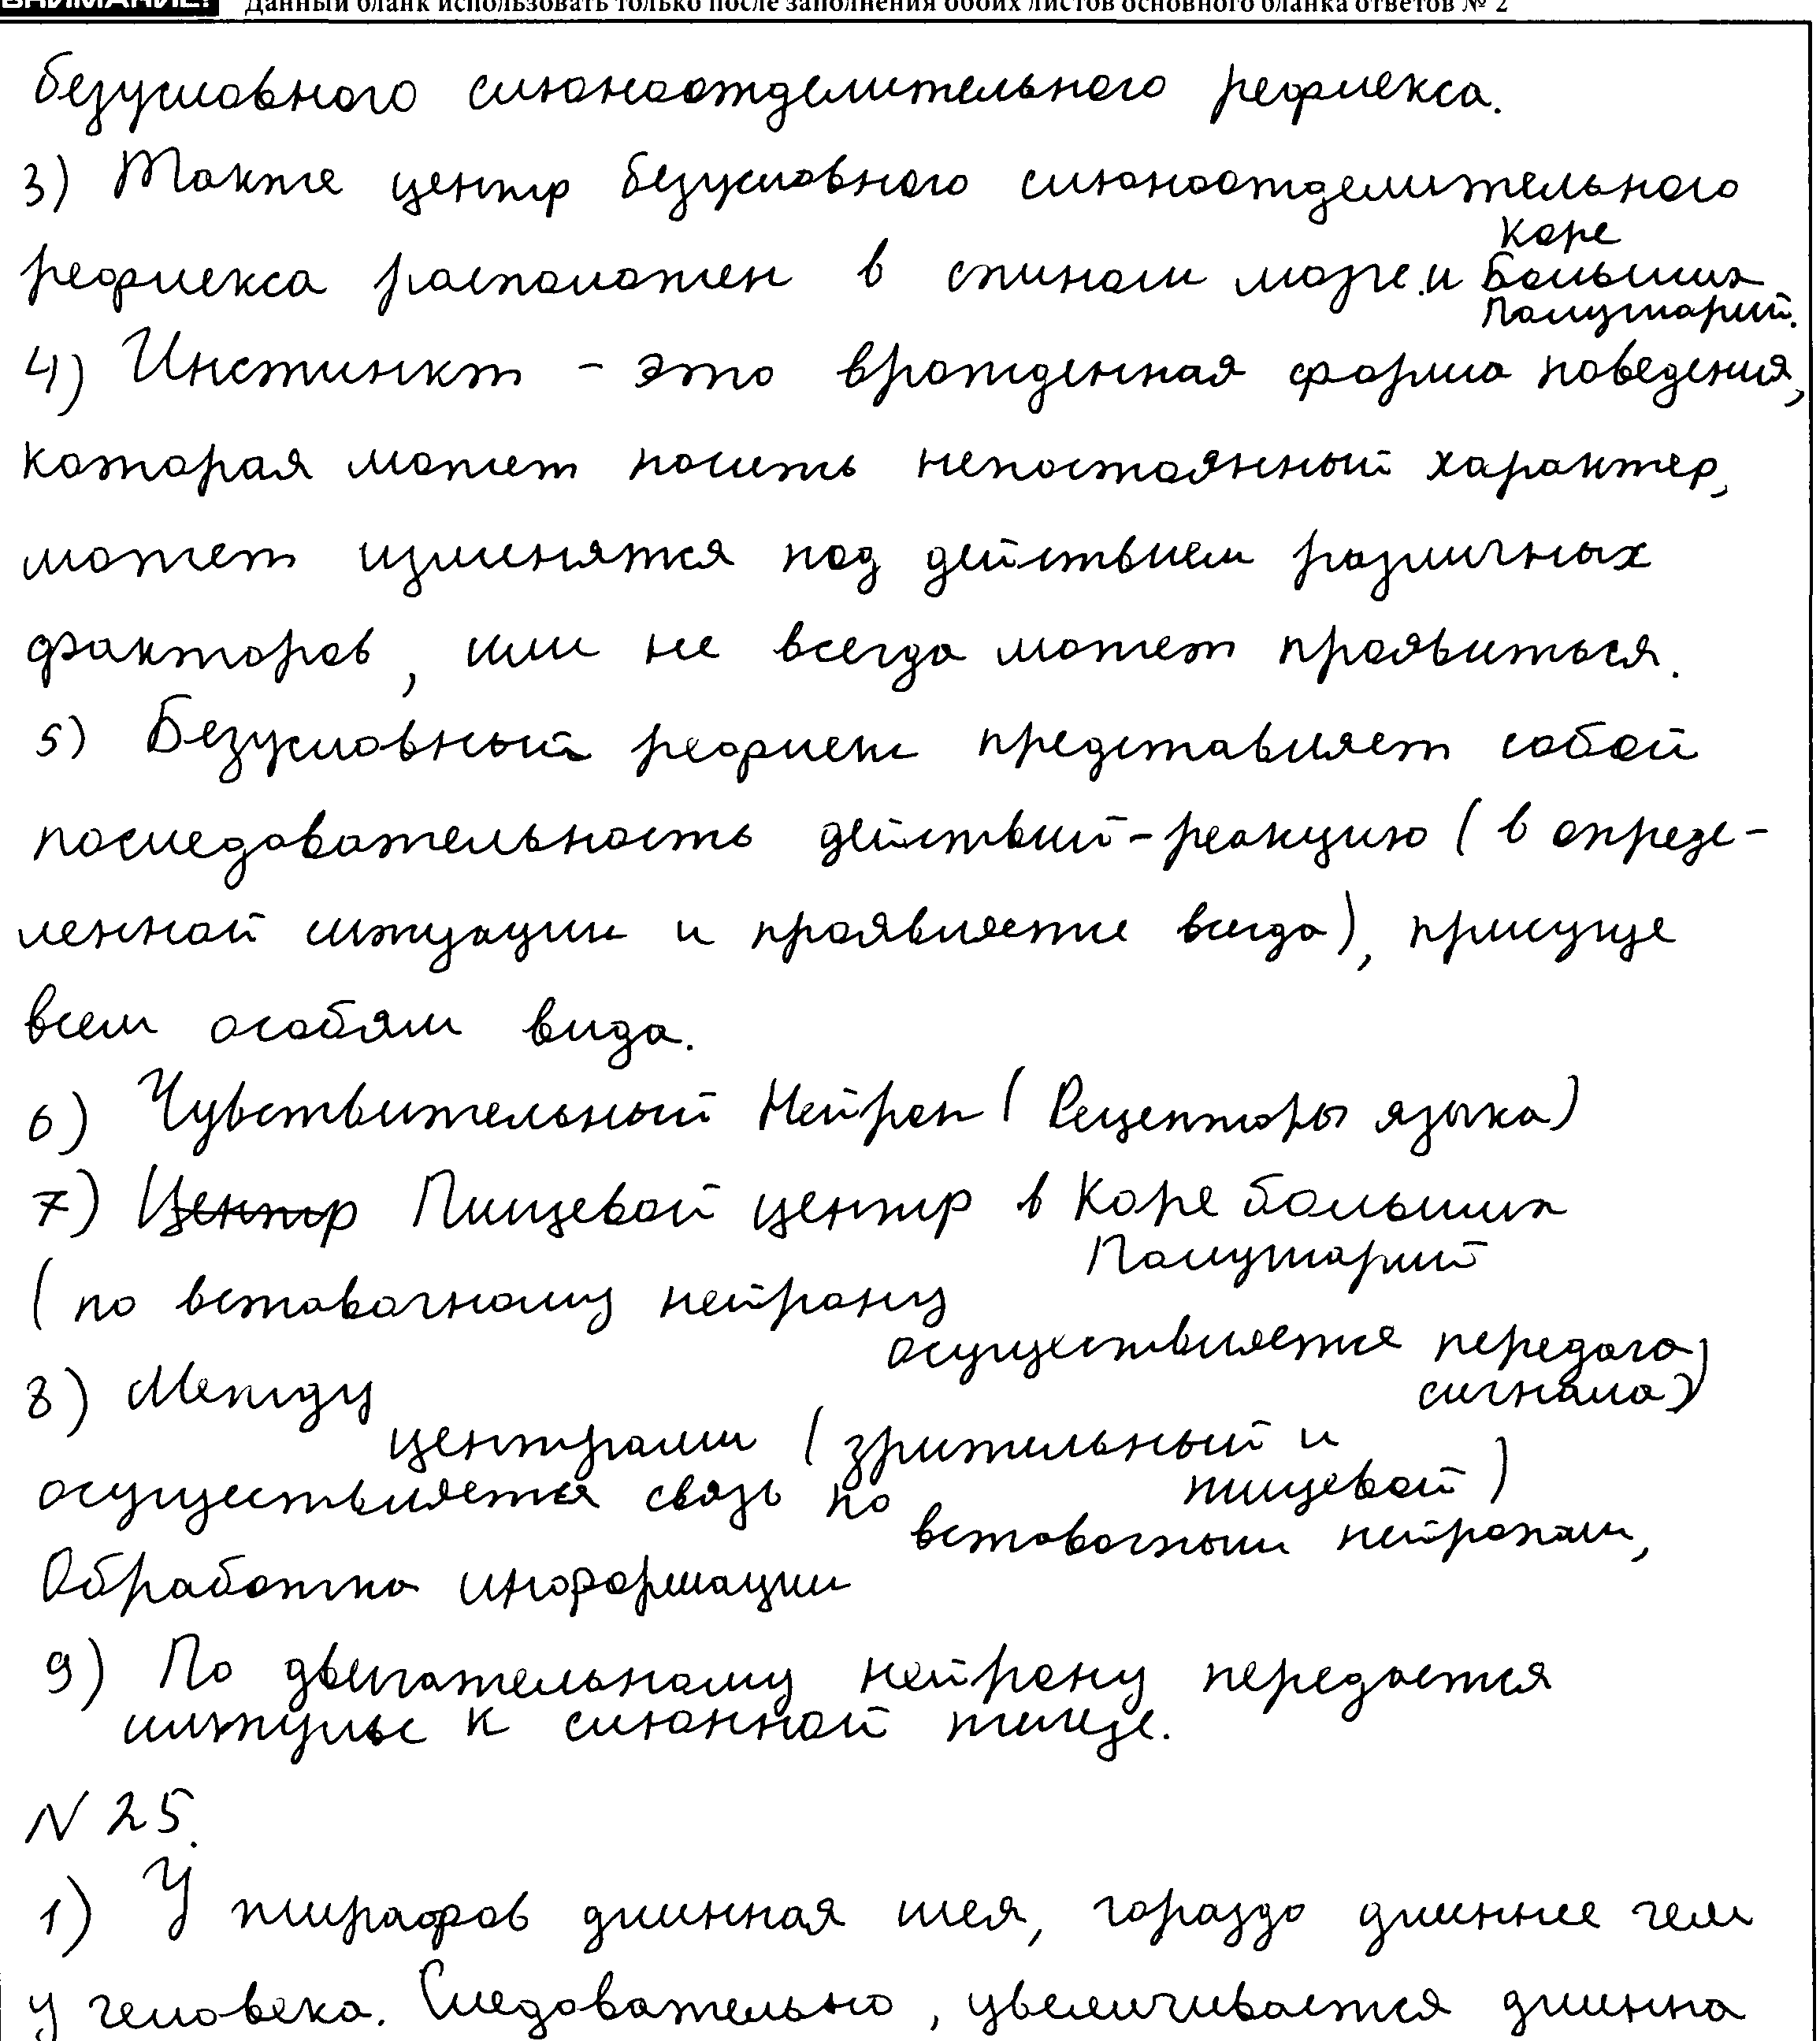 ВНИМАНИЕ! Данный бланк использовать только после заполнения обоих листов основного бланка ответов № 2
безусловного слюноотделительного рефлекса.
3) Также центр безусловного слюноотделительного
рефлекса расположен в спином мозге и Коре
Больших
Полушарий.
4) Инстинкт - это врожденная форма поведения,
которая может носить непостоянный характер,
может изменятся под действием различных
факторов, или не всегда может проявиться.
5) Безусловный рефлекс представляет собой
последовательность действий-реакцию (в опреде-
ленной ситуации и проявляется всегда), присуще
всем особям вида.
6) Чувствительный Нейрон (Рецепторы языка)
7) Центр Пищевой центр в Коре больших
Полушарий
(по вставочному нейрону
осуществляется передача
сигнала)
8) Между
центрами (зрительный и
пищевой)
осуществляется связь по
вставочным нейронам,
Обработка информации
9) По двигательному нейрону передается
импульс к слюнной железе.
N 25.
1) У жирафов длинная шея, гораздо длиннее чем
у человека. Следовательно, увеличивается длинна